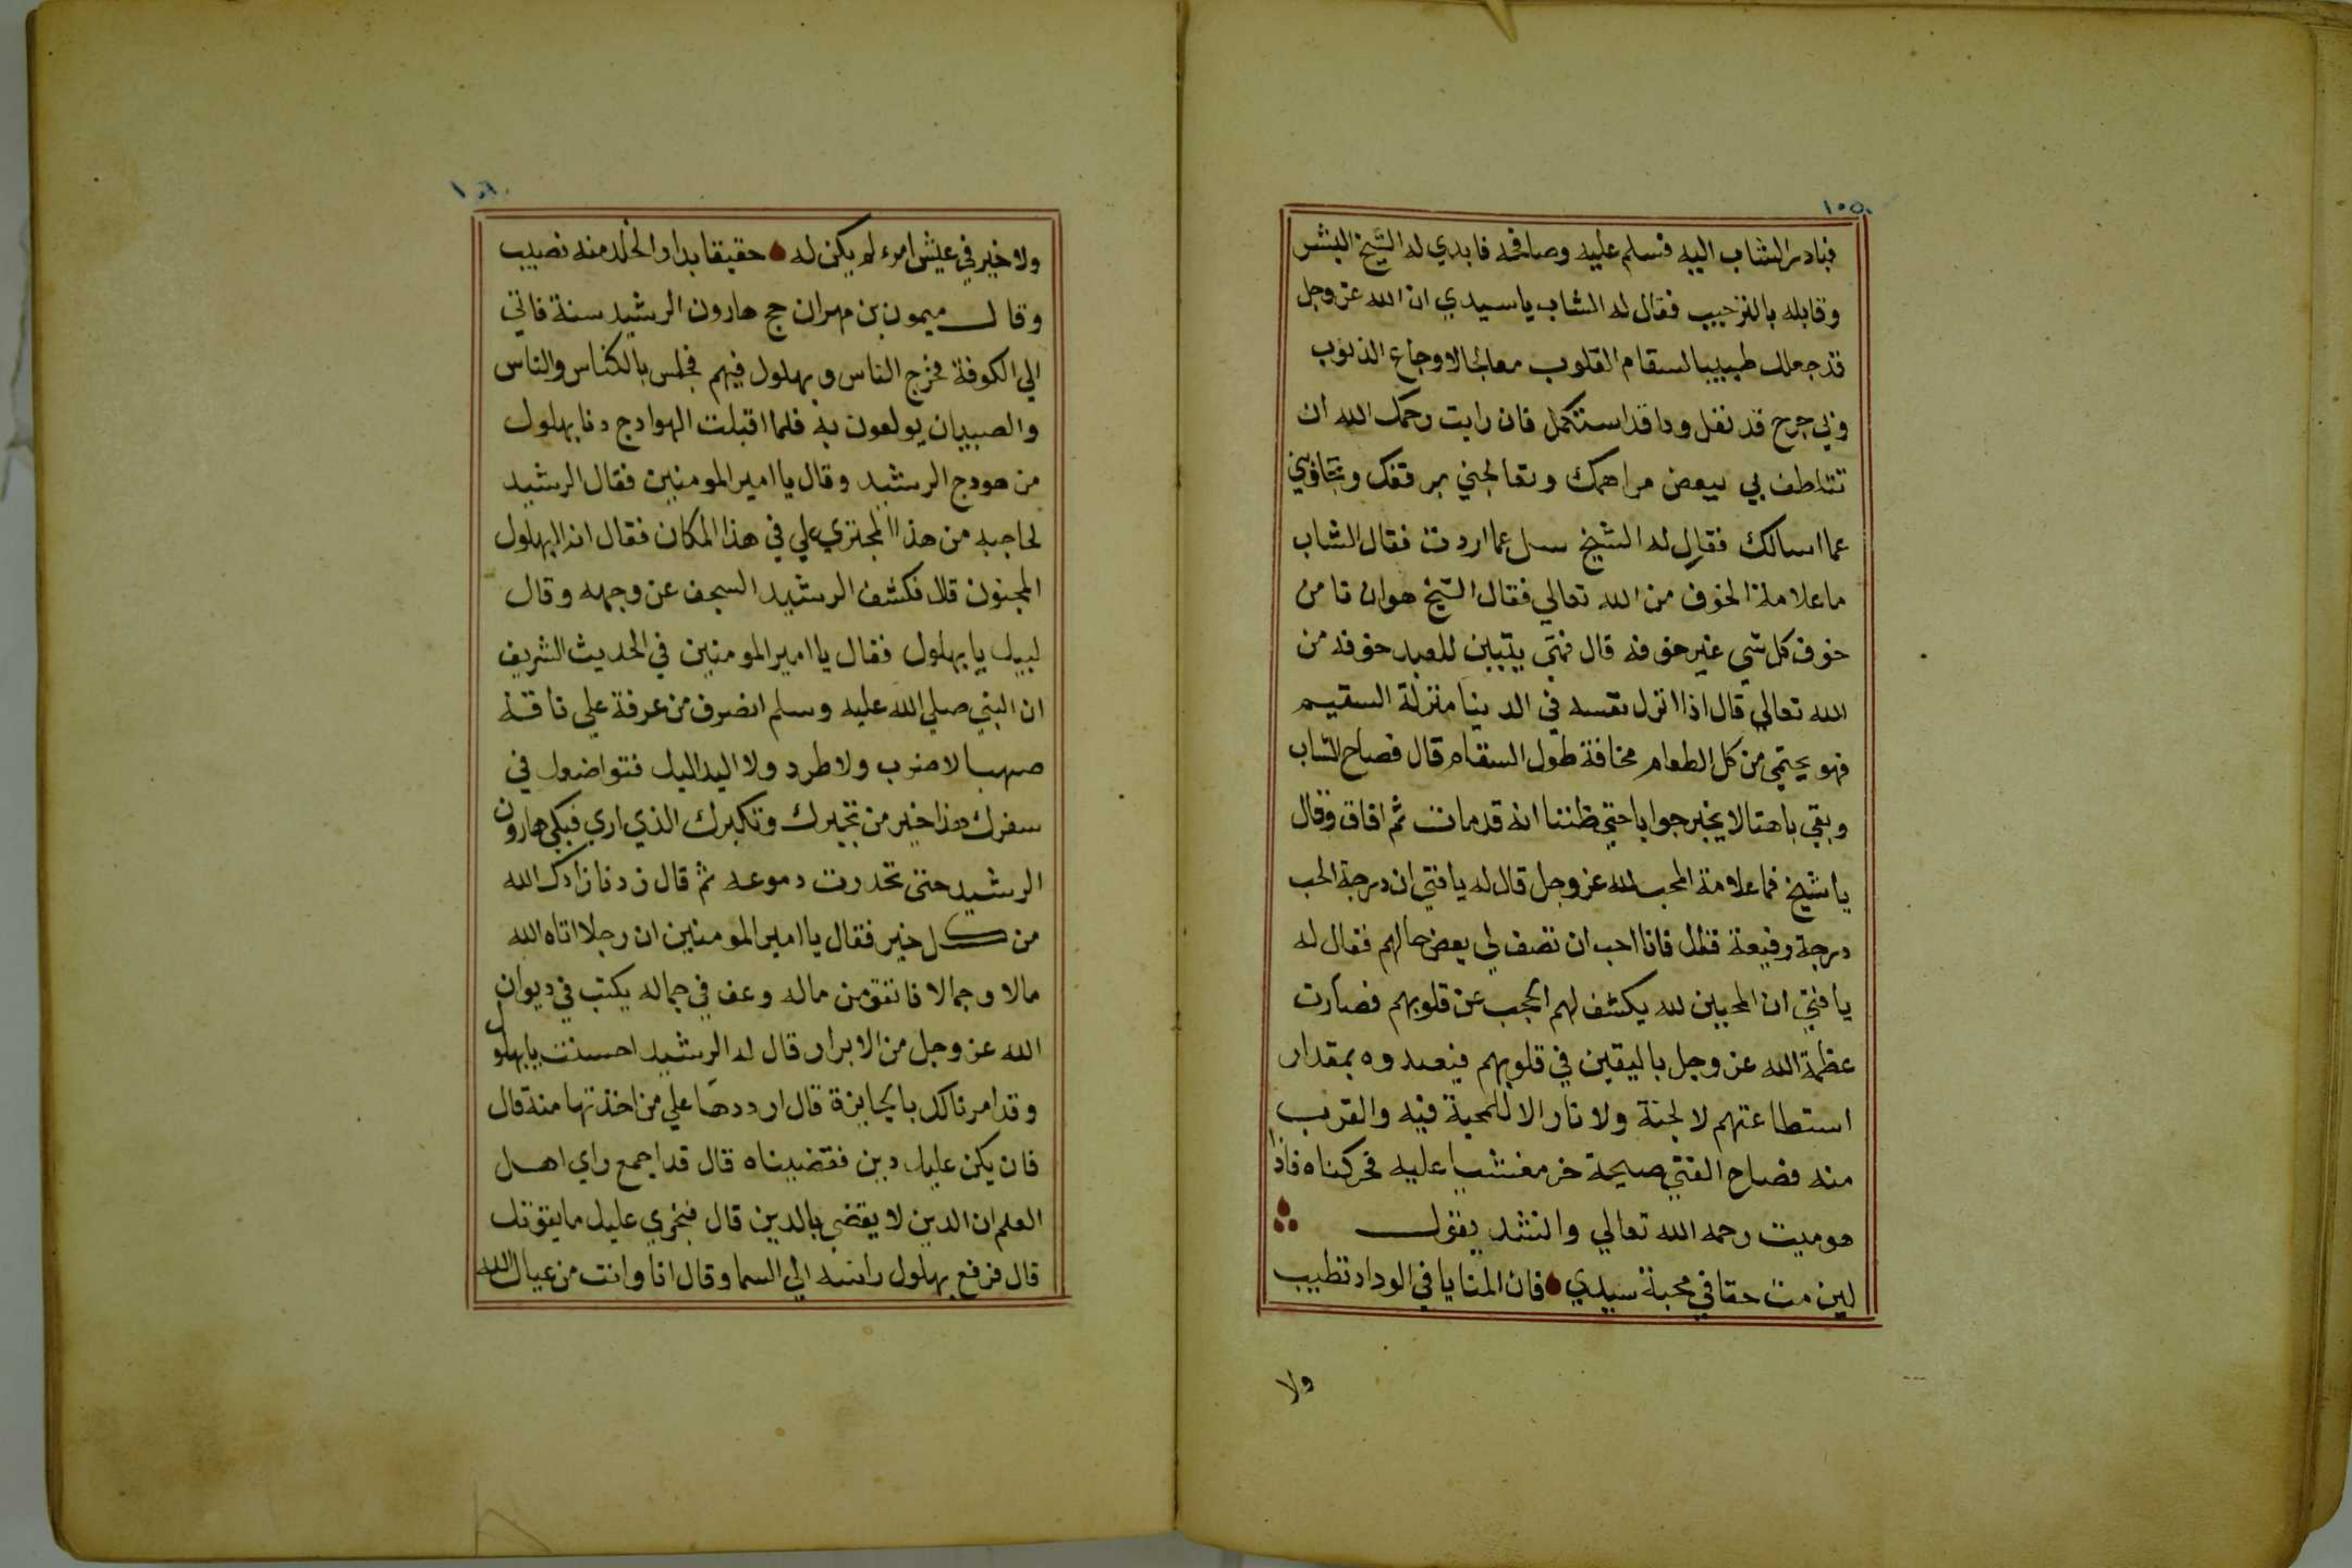 ١٥٥
فبادر الشاب اليه فسلم عليه وصافحه فابدي له الشيخ البشر
وقابله بالترحيب فقال له الشاب ياسيدي ان الله عز وجل
قد جعلك طبيبا لسقام القلوب معالجا لاوجاع الذنوب
وبي جرح قد نغل ودا قد استكمل فان رايت رحمك الله ان
تتلطف بي ببعض مراهمك وتعالجني برفقك وتجاوبني
عما اسالك فقال له الشيخ سل عما اردت فقال الشاب
ما علامة الخوف من الله تعالي فقال الشيخ هو ان تامن
خوف كل شي غير خوفه قال فمتي يتبين للعبد خوفه من
الله تعالي قال اذا انزل نفسه في الدينا منزلة السقيم
فهو يحتمي من كل الطعام مخافة طول السقام قال فصاح الشاب
وبقي باهتا لا يخبر جوابا حتي ظننا انه قد مات ثم افاق وقال
يا شيخ فما علامة المحب لله عز وجل قال له يافتي ان درجة الحب
درجة رفيعة فقال فانا احب ان تصف لي بعض حالهم فقال له
يا فتي ان المحبين لله يكشف لهم الحجب عن قلوبهم فصارت
عظمة الله عز وجل باليقين في قلوبهم فيعبدوه بمقدار
استطاعتهم لا لجنة ولا نار الا للمحبة فيه والقرب
منه فصاح الفتي صيحة خر مغشيا عليه فحركناه فاذا
هو ميت رحمه الله تعالي وانشد يقول
لين مت حقا في محبة سيدي فان المنايا في الوداد تطيب
ولا
ولا خير في عيش امرء لم يكن له حقيقا بدار الخلد منه نصيب
وقال ميمون بن مهران حج هارون الرشيد سنة فاتي
الي الكوفة فخرج الناس وبهلول فيهم فجلس بالكناس والناس
والصبيان يولعون به فلما اقبلت الهوادج دنا بهلول
من هودج الرشيد وقال يا امير المومنين فقال الرشيد
لحاجبه من هذا المجتري علي في هذا المكان فقال انه البهلول
المجنون قال فكشف الرشيد السجف عن وجهه وقال
لبيك يا بهلول فقال يا امير المومنين في الحديث الشريف
ان النبي صلي الله عليه وسلم انصرف من عرفة علي ناقة
صهبا لا ضرب ولا طرد ولا اليد اليك فتواضعك في
سفرك هذا خير من تجبرك وتكبرك الذي اري فبكي هارون
الرشيد حتي تحدرت دموعه ثم قال زدنا زادك الله
من كل خير فقال يا امير المومنين ان رجلا اتاه الله
مالا وجمالا فانفق من ماله وعف في جماله يكتب في ديوان
الله عز وجل من الابرار قال له الرشيد احسنت يا بهلول
وقد امرنا لك بالجايزة قال ارددها علي من اخذتها منه قال
فان يكن عليك دين فقضيناه قال قد اجمع راي اهل
العلم ان الدين لا يقضي بالدين قال فنجري عليك ما يقوتك
قال فرفع بهلول راسه الي السما وقال انا وانت من عيال الله